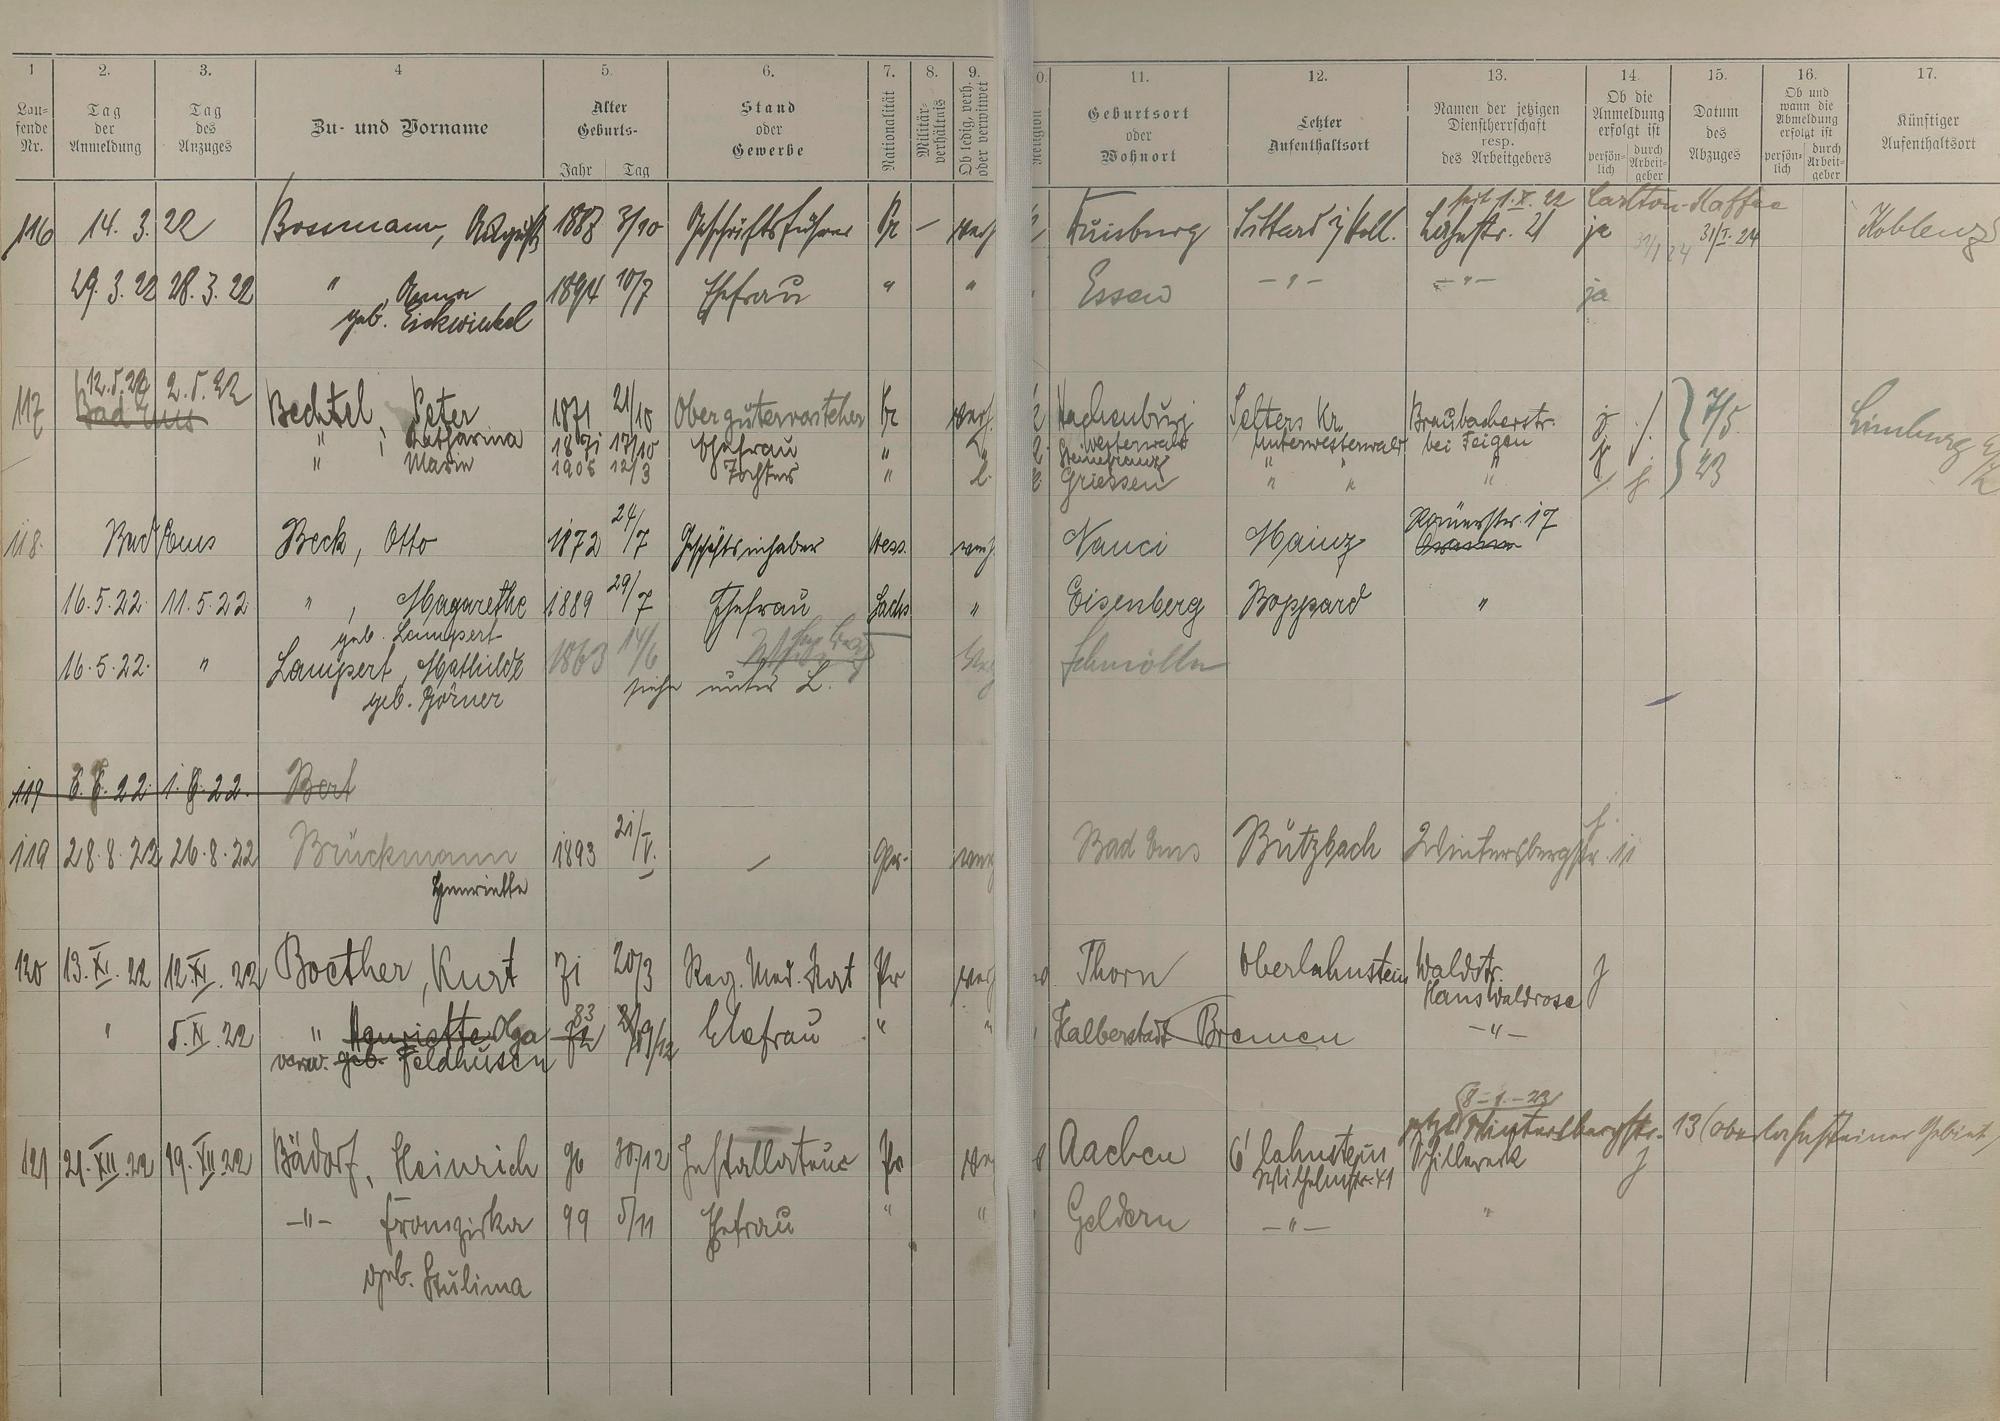 1 2. 3. 4 5. 6. 7. 8. 9. 0. 11. 12. 13. 14. 15. 16. 17.
Lau-
fende
Nr.
Tag
der
Anmeldung
Tag
des
Anzuges
Zu- und Vorname
Alter
Geburts-
Jahr Tag
Stand
oder
Gewerbe
Nationalität
Militär-
verhältnis
Ob ledig, verh.
oder verwitwet
Religion
Geburtsort
oder
Wohnort
Letzter
Aufenthaltsort
Namen der jetzigen
Dienstherrschaft
resp.
des Arbeitgebers
Ob die
Anmeldung
erfolgt ist
persön-
lich
durch
Arbeit-
geber
Datum
des
Abzuges
Ob und
wann die
Abmeldung
erfolgt ist
persön-
lich
durch
Arbeit-
geber
Künftiger
Aufenthaltsort
seit 1.X.22 Carlton-Kaffee
116 14. 3. 22 Bossmann, August 1887 3/10 Geschäftsführer Pr — verh Duisburg Sittard i/Holl. Lahnstr. 21 ja 31/1 24 31/I.24 Koblenz
29. 3. 22 28. 3. 22 " , Anna 1894 10/7 Ehefrau " " " Essen — " — — " — ja
geb. Eickwinkel
12.5.22 2.5.22
117 Bad Ems Bechtel, Peter 1871 21/10 Obergütervorsteher Pr verh. Hachenburg Selters Kr. Braubacherstr. j /. 7/5. Limburg
" , Katharina 1871 17/10 Ehefrau " " Westerwald Unterwesterwald bei Feigen j /.
" Maria 1906 12/3 Tochter " l. Griessen " " " /. j 23
118. Bad Ems Beck, Otto 1872 24/7 Geschäftsinhaber Hess. verh Nanci Mainz Römerstr. 17
16.5.22. 11.5.22 " , Magarethe 1889 29/7 Ehefrau Sachs " Eisenberg Boppard "
geb. Lampert
16.5.22. " Lampert, Mathilde 1863 14/6 Schmölln
geb. Görner siehe unter L.
119 6. 6. 22. 1. 6. 22. Bert
119 28.8.22 26.8.22 Brückmann 1893 21/V. — Bad Ems Bützbach Wintersbergstr. 11 j.
Henriette
120 13.XI.22 12.XI.22 Boether, Kurt 71 20/3 Reg. Med. Rat Pr verh Thorn Oberlahnstein Waldstr. j
Haus Waldrose
" 5.XI.22 " Henriette Olga 83 72 19/12 Ehefrau " " " Halberstadt Bremen — " —
verw. geb. Feldhusen
8=1.-23
jetzt Wintersbergstr. 13 (oberlahnsteiner Gebiet)
121 21.XII.22 19.XII.22 Bädorf, Heinrich 96 30/12 Installateur Pr verh Aachen O'lahnstein Schillereck j
Wilhelmstr. 41
— " — Franziska 99 5/11 Ehefrau " " Geldern — " — "
geb. Stulima